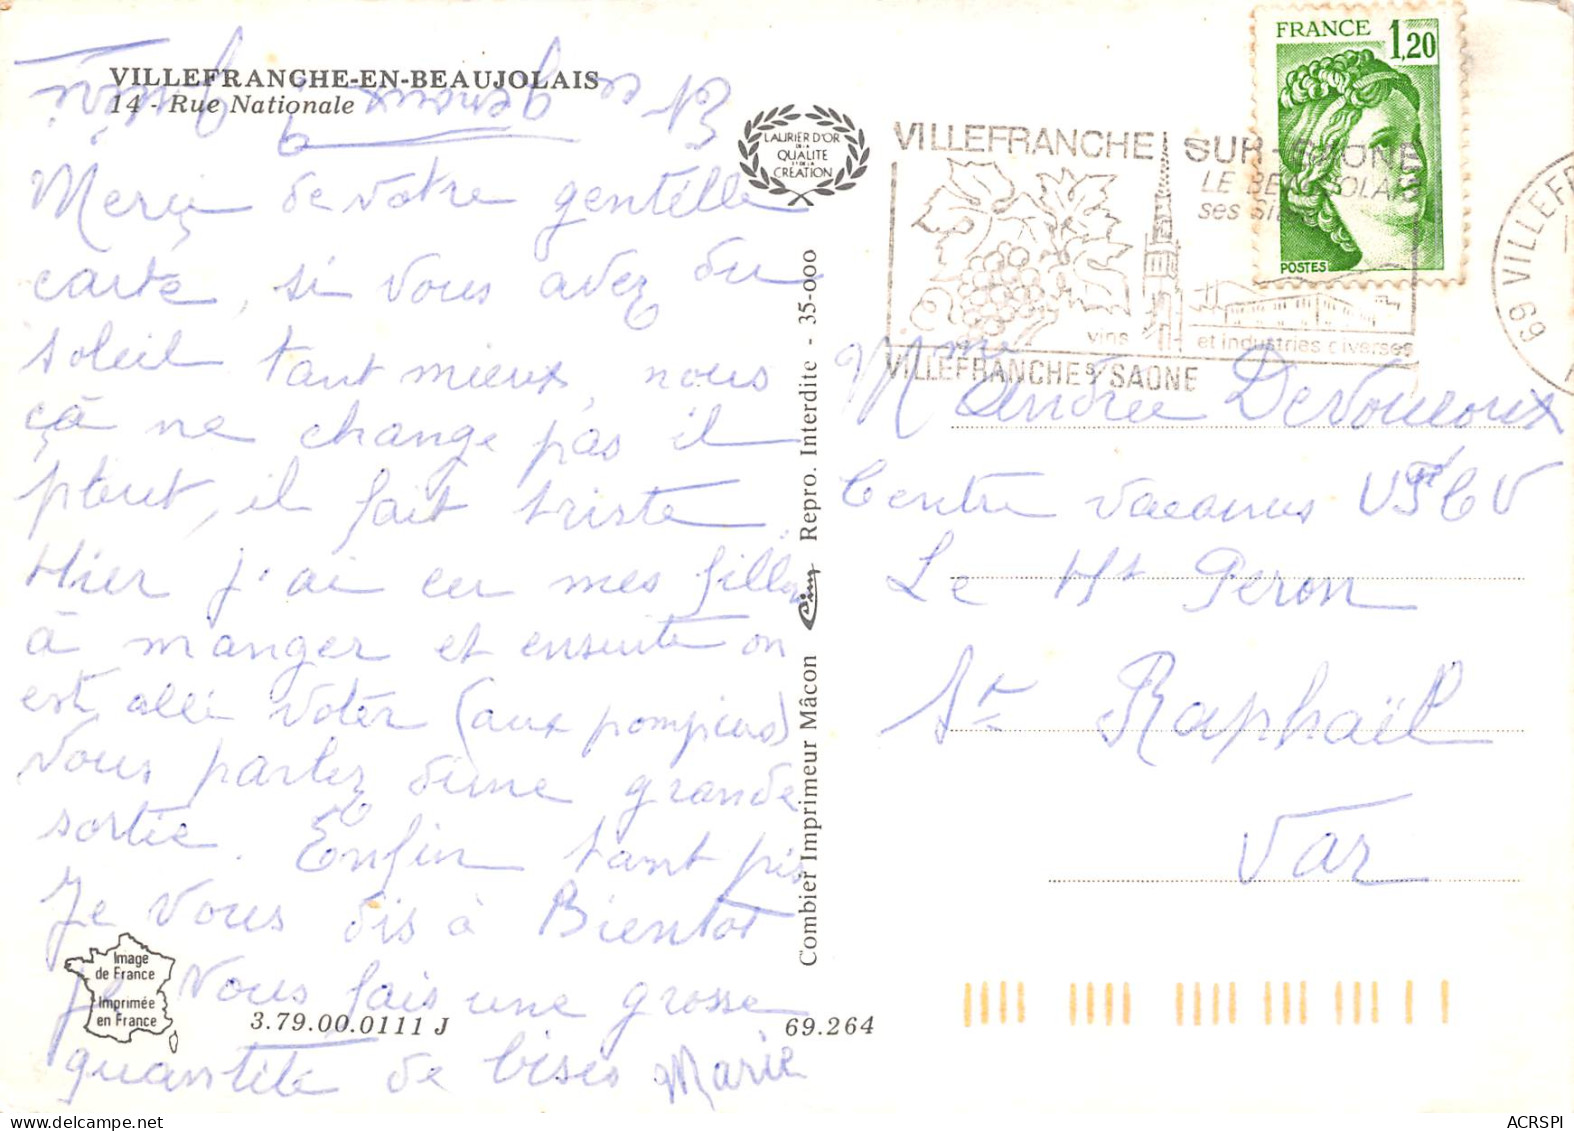 VILLEFRANCHE-EN-BEAUJOLAIS
14 - Rue Nationale
Merci de votre gentille
carte, si vous avez du
soleil tant mieux, nous
çà ne change pas il
pleut, il fait triste.
Hier j'ai eu mes filles
à manger et ensuite on
est allé voter (aux pompiers)
Vous parlez d'une grande
sortie. Enfin tant pis
Je vous dis à Bientot
Je vous fais une grosse
quantité de bises Marie
Et en genoux
Image
de France
Imprimée
en France
3.79.00.0111 J
69.264
LAURIER D'OR
DE LA
QUALITE
ET DE LA
CREATION
Combier Imprimeur Mâcon
Cim
Repro. Interdite - 35-000
FRANCE 1,20
POSTES
VILLEFRANCHE SUR-SAONE
LE BEAUJOLAIS
ses
vins et industries diverses
VILLEFRANCHE S/ SAONE
69 VILLEFR
Mme Andrée Devoucoux
Centre vacances
Le Ht Peron
St Raphaël
Var
ACRSPI